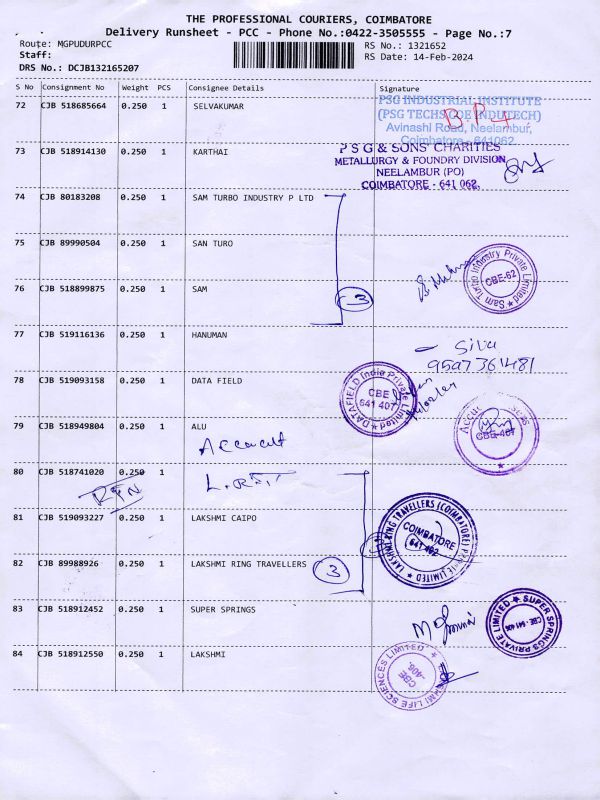 THE PROFESSIONAL COURIERS, COIMBATORE
Delivery Runsheet - PCC - Phone No.:0422-3505555 - Page No.:7
Route: MGPUDURPCC
RS No.: 1321652
Staff:
RS Date: 14-Feb-2024
DRS No.: DCJB132165207
S No Consignment No Weight PCS Consignee Details Signature
72 CJB 518685664 0.250 1 SELVAKUMAR
PSG INDUSTRIAL INSTITUTE
(PSG TECHS COE INDUTECH)
Avinashi Road, Neelambur,
Coimbatore - 641062.
73 CJB 518914130 0.250 1 KARTHAI
P S G & SONS' CHARITIES
METALLURGY & FOUNDRY DIVISION
NEELAMBUR (PO)
COIMBATORE - 641 062.
74 CJB 80183208 0.250 1 SAM TURBO INDUSTRY P LTD
75 CJB 89990504 0.250 1 SAN TURO
Sam Turbo Industry Private Limited
CBE-62
76 CJB 518899875 0.250 1 SAM
3
77 CJB 519116136 0.250 1 HANUMAN
Silu
9597361481
78 CJB 519093158 0.250 1 DATA FIELD
DATAFIELD India Private Limited
CBE
641 407
79 CJB 518949804 0.250 1 ALU
Account
CBE-407
80 CJB 518741020 0.250 1
RTN
81 CJB 519093227 0.250 1 LAKSHMI CAIPO
LAKSHMI RING TRAVELLERS (COIMBATORE) PRIVATE LIMITED
COIMBATORE
641 402
82 CJB 89988926 0.250 1 LAKSHMI RING TRAVELLERS
3
83 CJB 518912452 0.250 1 SUPER SPRINGS
SUPER SPRINGS PRIVATE LIMITED
CBE - 641 406
84 CJB 518912550 0.250 1 LAKSHMI
LIFE SCIENCES LIMITED
CBE
-406.